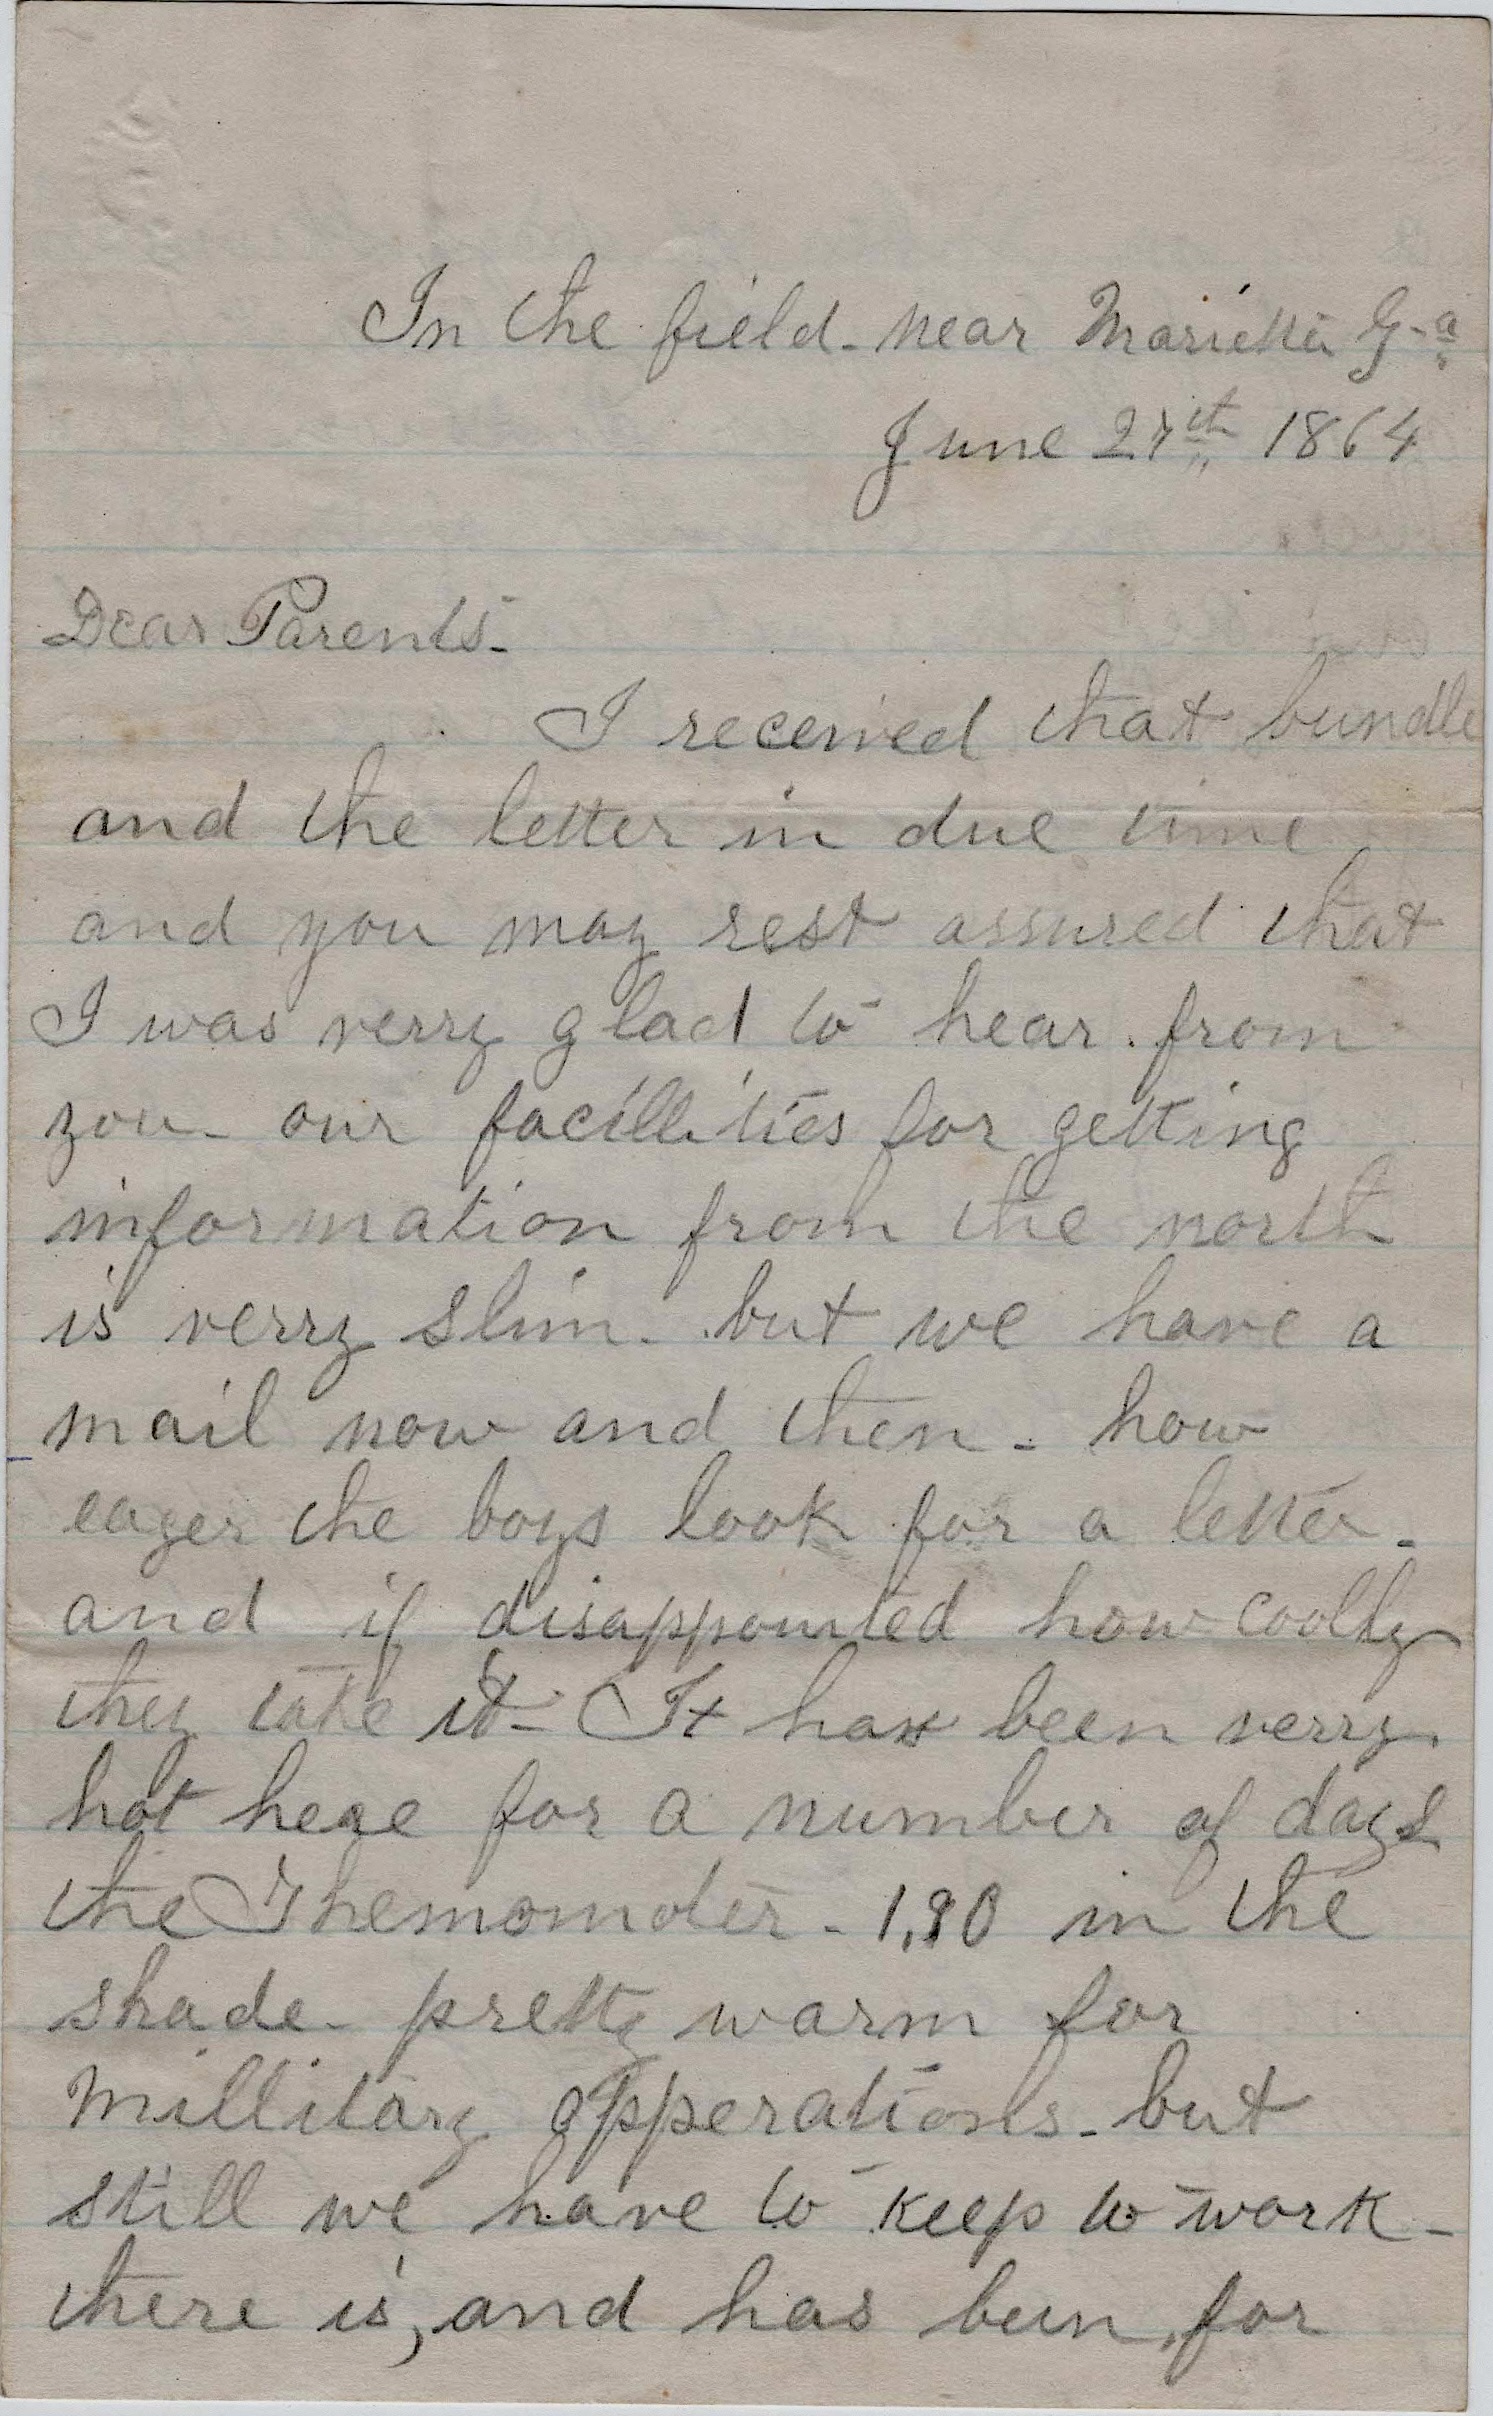 In the field - near Marietta G-a
June 27th 1864
Dear Parents -
I received that bundle
and the letter in due time
and you may rest assured that
I was verry glad to hear from
you - our facillities for getting
information from the north
is verry slim - but we have a
mail now and then - how
eager the boys look for a letter -
and if disappointed how coolly
they take it - It has been verry
hot here for a number of days
the Themomoter - 1,90 in the
shade - pretty warm for
Millitary opperations - but
still we have to keep to work -
there is, and has been, for